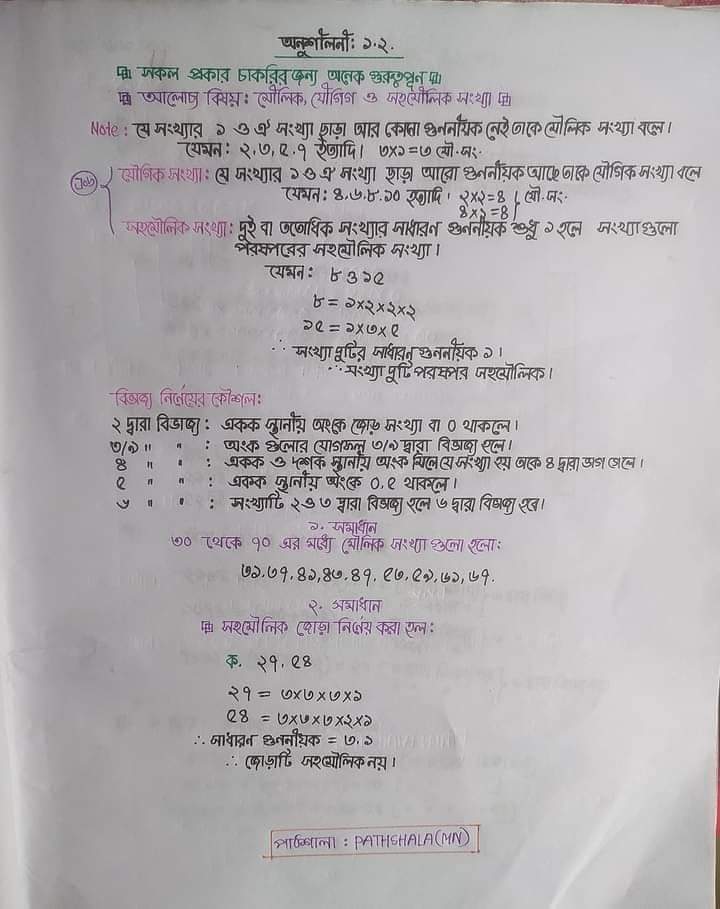 অনুশীলনী: ১.২.
সকল প্রকার চাকরির জন্য অনেক গুরুত্বপূন
আলোচ্য বিষয়: মৌলিক, যৌগিগ ও সহমৌলিক সংখ্যা
Note: যে সংখ্যার ১ ও ঐ সংখ্যা ছাড়া আর কোনো গুননীয়ক নেই তাকে মৌলিক সংখ্যা বলে।
যেমন: ২,৩,৫,৭ ইত্যাদি। ৩x১=৩ মৌ.সং.
যৌগিক সংখ্যা: যে সংখ্যার ১ ও ঐ সংখ্যা ছাড়া আরো গুননীয়ক আছে তাকে যৌগিক সংখ্যা বলে
যেমন: ৪,৬,৮,১০ ইত্যাদি। ২x২=৪ যৌ.সং.
৪x১=৪
সহমৌলিক সংখ্যা: দুই বা ততোধিক সংখ্যার সাধারণ গুননীয়ক শুধু ১ হলে সংখ্যাগুলো
পরষ্পরের সহমৌলিক সংখ্যা।
যেমন: ৮ ও ১৫
৮ = ১x২x২x২
১৫ = ১x৩x৫
∴ সংখ্যা দুটির সাধারন গুননীয়ক ১।
∴ সংখ্যা দুটি পরষ্পর সহমৌলিক।
বিভাজ্য নির্ণয়ের কৌশল:
২ দ্বারা বিভাজ্য: একক স্থানীয় অংকে জোড় সংখ্যা বা 0 থাকলে।
৩/৯ " " : অংক গুলোর যোগফল ৩/৯ দ্বারা বিভাজ্য হলে।
৪ " " : একক ও দশক স্থানীয় অংক মিলে যে সংখ্যা হয় তাকে ৪ দ্বারা ভাগ গেলে।
৫ " " : একক স্থানীয় অংকে 0,৫ থাকলে।
৬ " " : সংখ্যাটি ২ ও ৩ দ্বারা বিভাজ্য হলে ৬ দ্বারা বিভাজ্য হবে।
১. সমাধান
৩০ থেকে ৭০ এর মধ্যে মৌলিক সংখ্যা গুলো হলো:
৩১,৩৭,৪১,৪৩,৪৭,৫৩,৫৯,৬১,৬৭.
২. সমাধান
সহমৌলিক জোড়া নির্ণেয় করা হল:
ক. ২৭, ৫৪
২৭ = ৩x৩x৩x১
৫৪ = ৩x৩x৩x২x১
∴ সাধারন গুননীয়ক = ৩,১
∴ জোড়াটি সহমৌলিক নয়।
পাঠশালা : PATHSHALA(MN)